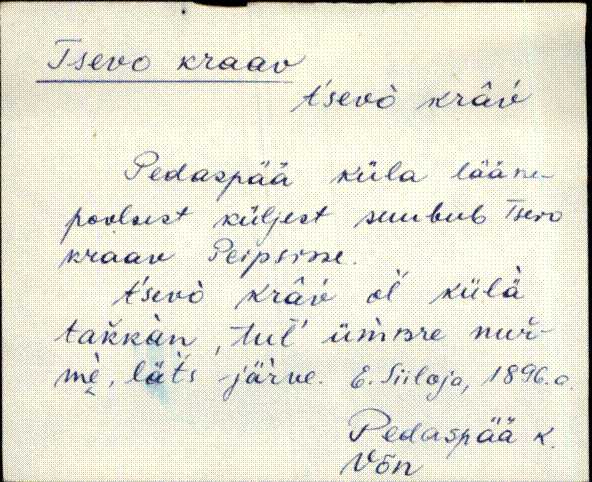 Tsevo kraav
t́sevò krâv́
Pedaspää küla lääne-
poolsest küljest suubub Tsevo
kraav Peipsisse.
t́sevò krâv́ oĺ külà
takkàn, tuĺ ümbre nuŕ-
mè, läts järve. E. Siiloja, 1896. a.
Pedaspää k.
Võn